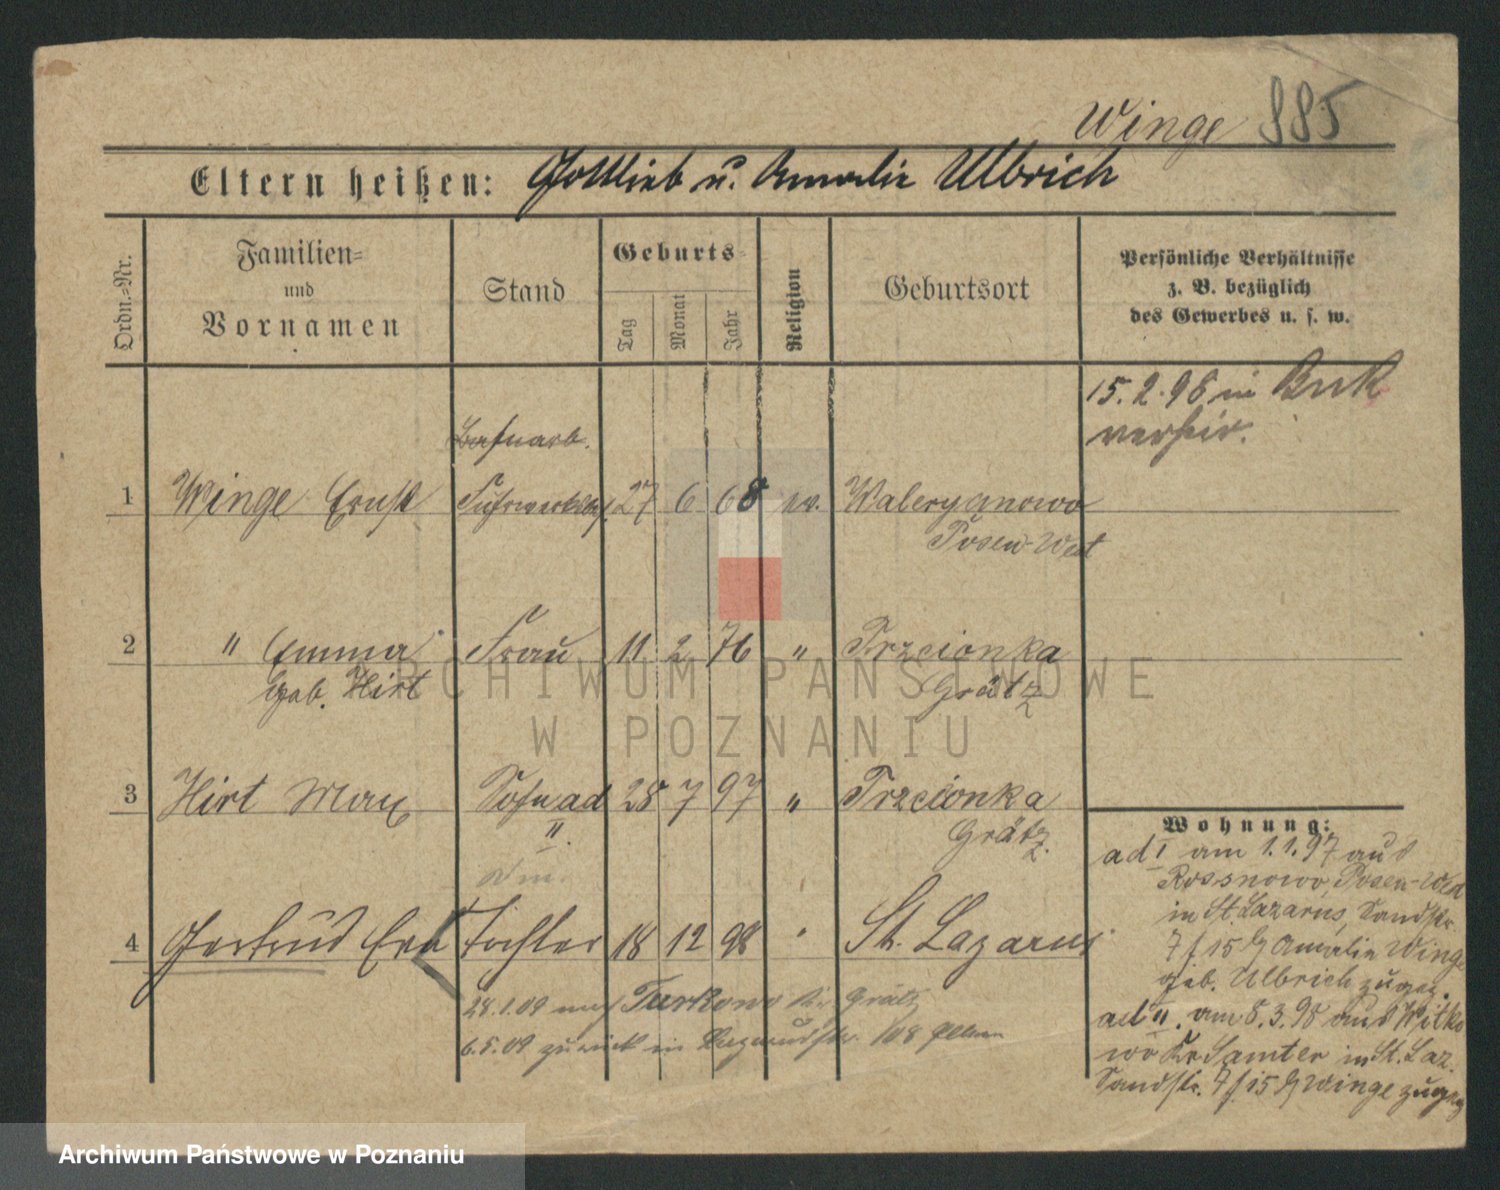 Winge 885
Eltern heißen: Gottlieb u. Amalie Ulbrich
Ordn.-Nr.
Familien- und Vornamen
Stand
Geburts-
Tag
Monat
Jahr
Religion
Geburtsort
Persönliche Verhältnisse
z. B. bezüglich
des Gewerbes u. s. w.
15. 2. 98 in Buk
verheir.
Bahnarb.
1 Winge Ernst 27 6 68 ev. Waleryanowo
Posen-West
2 " Emma Frau 11 2 76 " Trzcionka
geb. Hirt Grätz
3 Hirt Max Sohn ad 28 7 97 " Trzcionka
II. Grätz
4 Gertrud Eva Tochter 18 12 98 " St. Lazarus
28.1.09 nach Turkowo Kr. Grätz
6.5.09 zurück in 108
Wohnung:
ad I am 1.1.97 aus
Rossnowo, Posen-West
in St Lazarus, Sandstr.
7 f 15 b/ Amalie Winge
geb. Ulbrich zugez.
ad II. am 5.3.98 aus Witko
wo Kr Samter in St. Laz.
Sandstr. 7 f. 15 b/ Winge zugez
ARCHIWUM PAŃSTWOWE
W POZNANIU
Archiwum Państwowe w Poznaniu